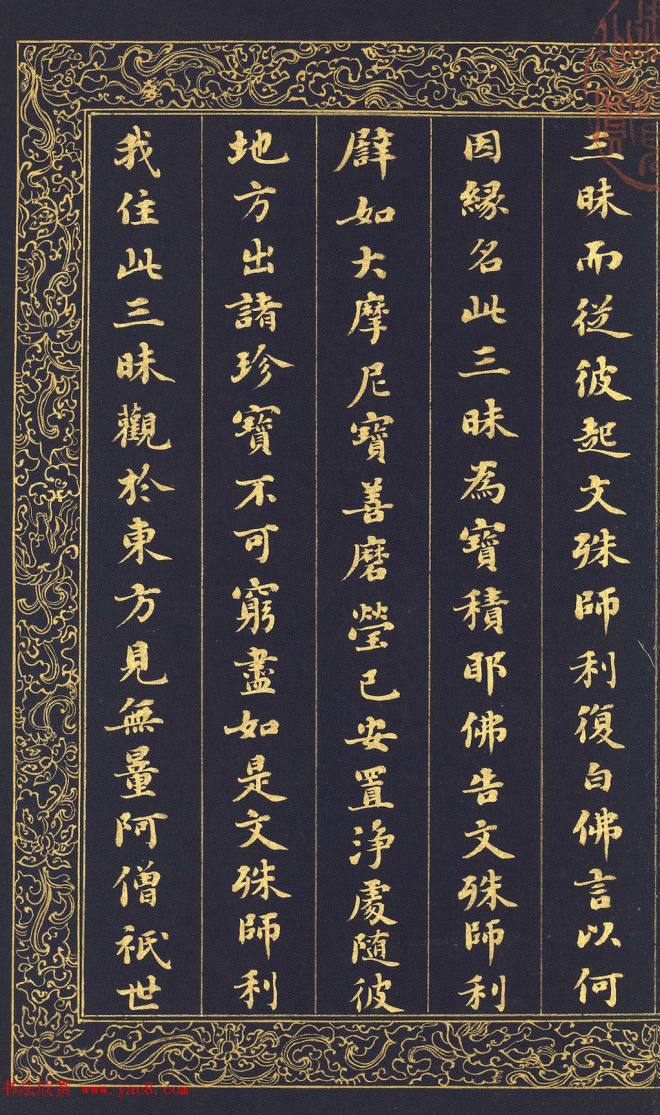 三昧而従彼起文殊師利復白佛言以何
因緣名此三昧為寶積耶佛告文殊師利
譬如大摩尼寶善磨瑩已安置淨處随彼
地方出諸珍寶不可窮盡如是文殊師利
我住此三昧觀於東方見無量阿僧祇世
书法欣赏 www.yac8.com